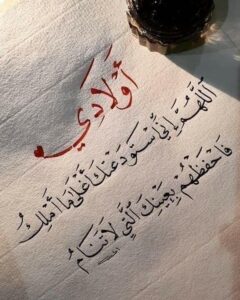 أَوْلَادِي
اللَّهُمَّ إِنِّي اسْتَوْدَعْتُكَ أَغْلَى مَا أَمْلِكُ
فَاحْفَظْهُمْ بِعَيْنِكَ الَّتِي لَا تَنَامُ